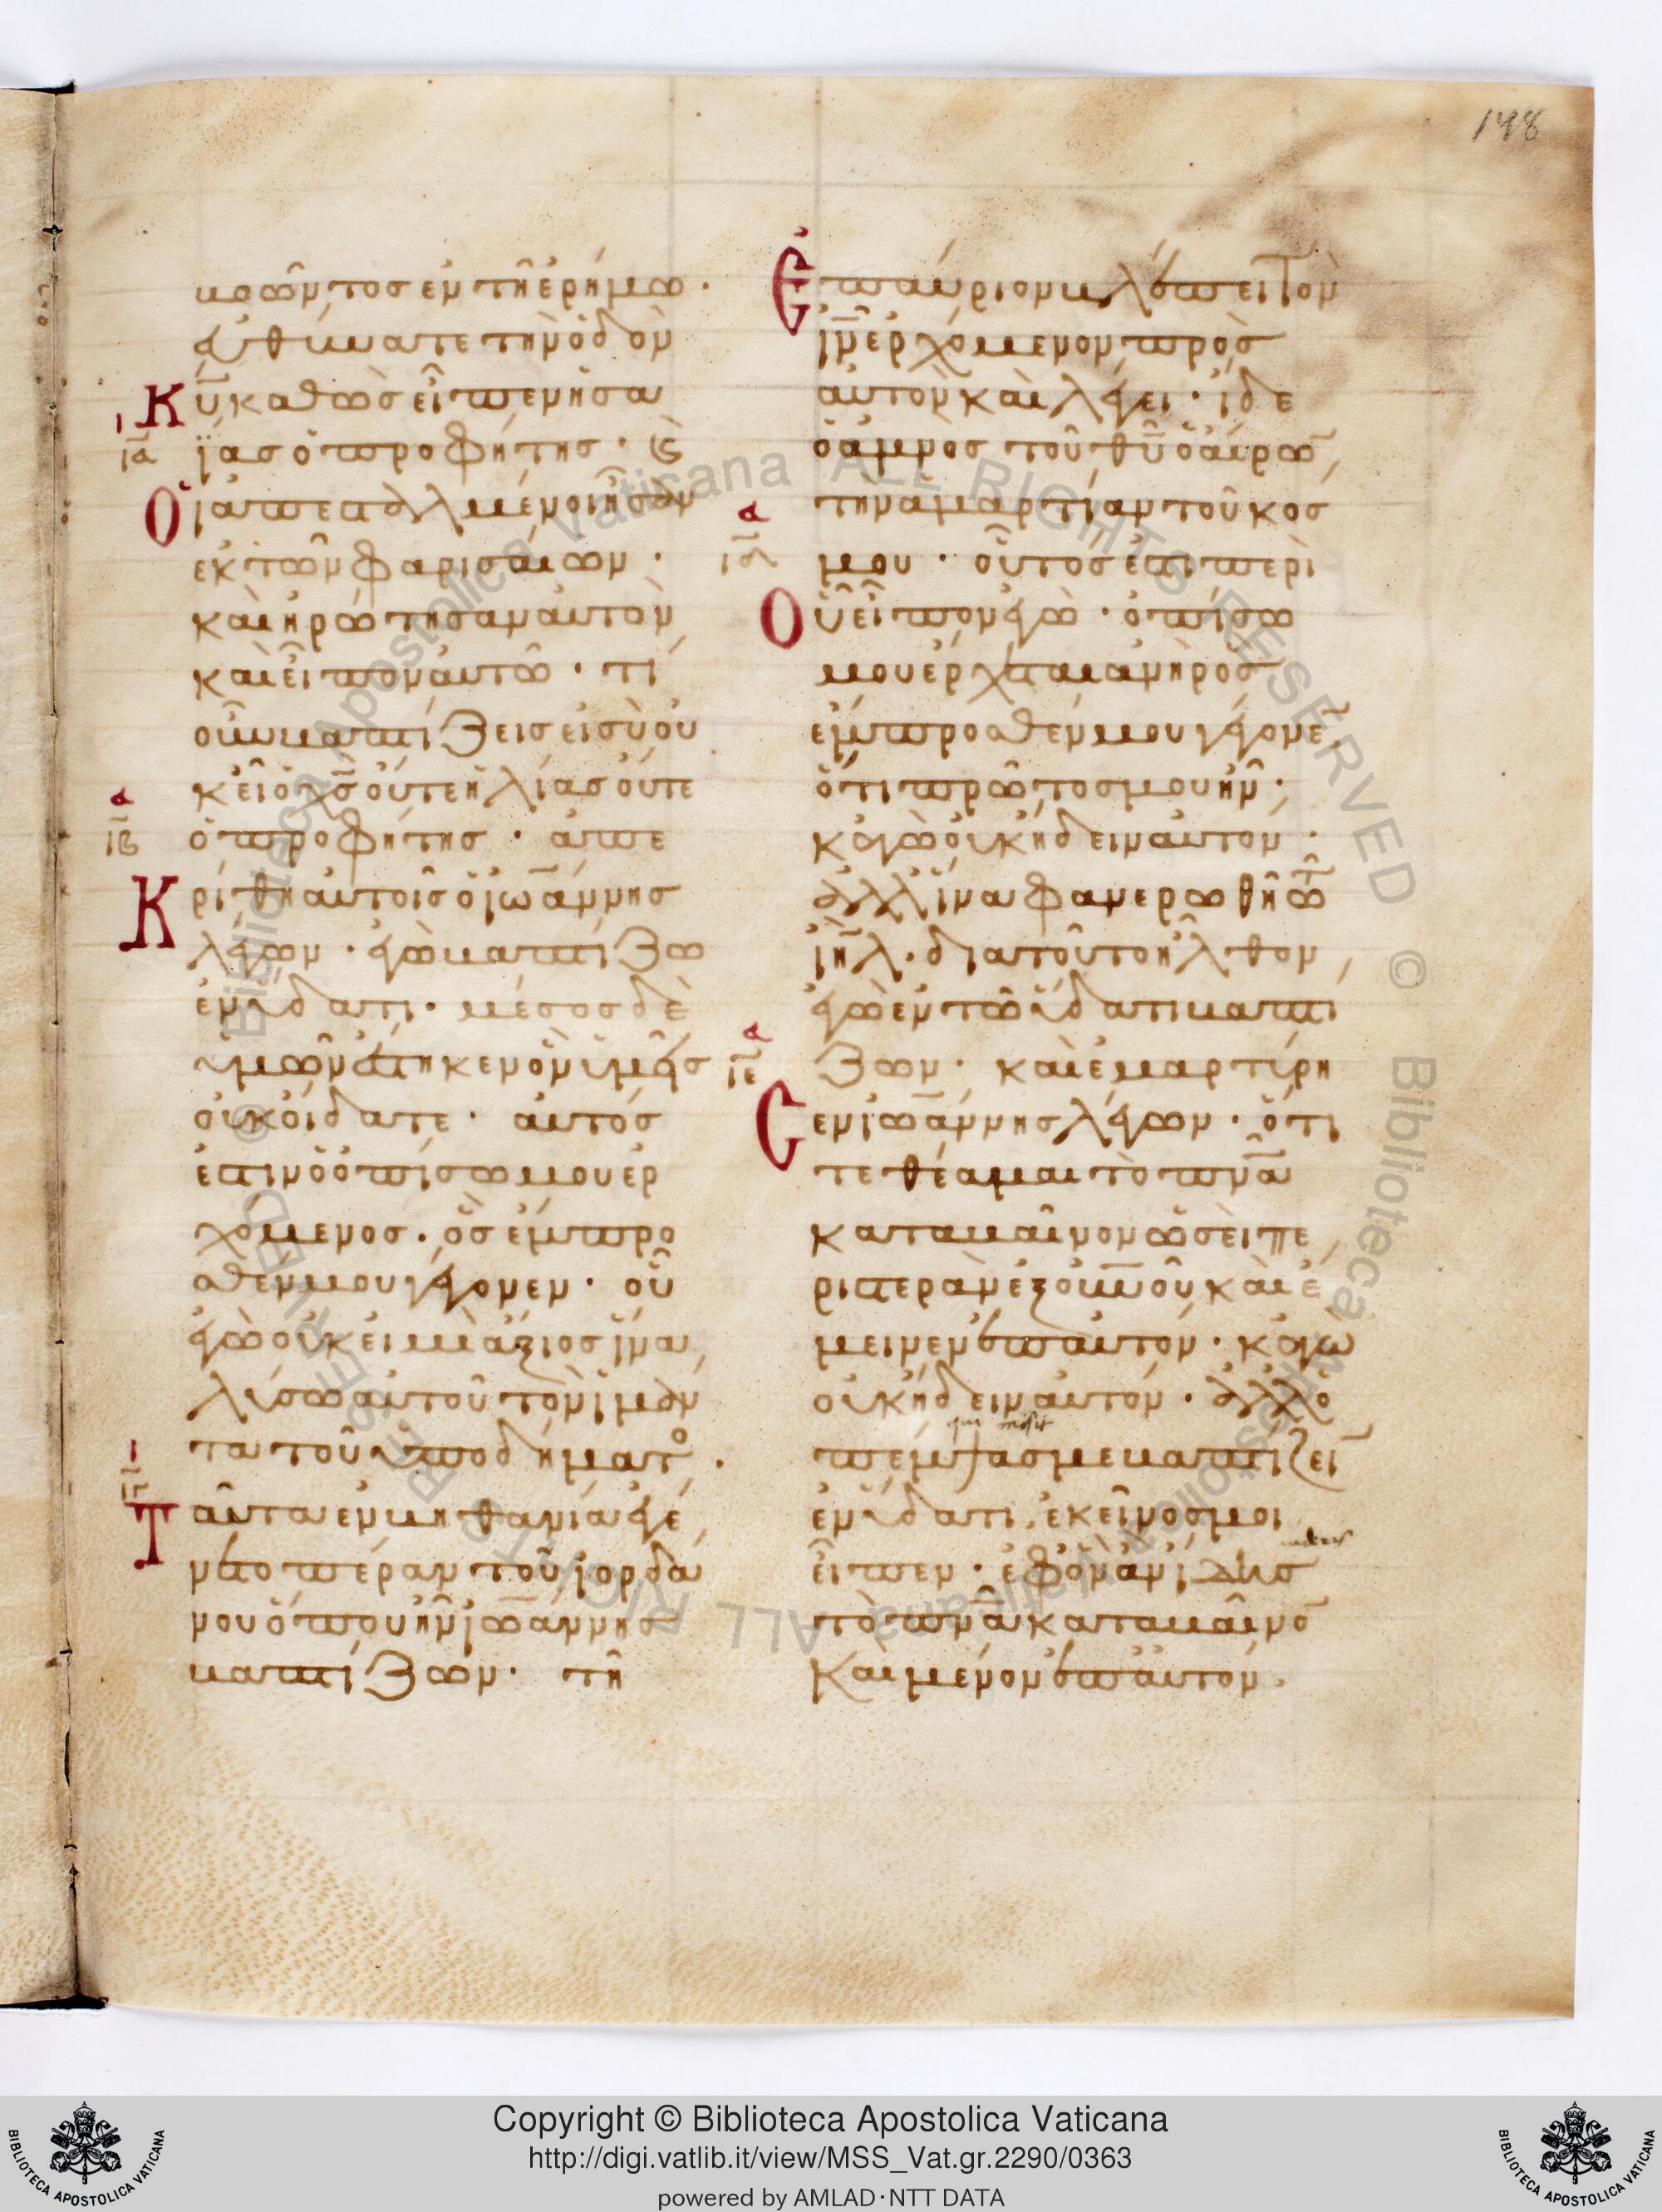 148
βοῶντος ἐν τῆ ἐρήμω·
εὐθύνατε τὴν ὁδὸν
κ̅υ̅ καθὼς εἶπεν ησα
ΐας ὁ προφήτης· (ϛ)
Οἱ ἀπεσταλμένοι ἦσαν
ἐκ τῶν φαρισαίων·
καὶ ἠρώτησαν αὐτὸν
καὶ εἶπον αὐτῶ· τί
οὖν βαπτίζεις εἰ σὺ οὐ
κ εἶ ὁ χ̅ς̅ οὔτε ἠλίας οὔτε
ὁ προφήτης· ἀπε
Κρίθη αὐτοῖς ὁ ἰω̅άννης
λέγων· ἐγὼ βαπτίζω
ἐν ὕδατι· μέσος δὲ
ὑμῶν ἕστηκεν ὃν ὑμεῖς
οὐκ οἴδατε· αὐτός
ἐστιν ὁ ὀπίσω μου ἐρ
χόμενος· ὃς ἔμπρο
σθεν μου γέγονεν· οὗ
ἐγὼ οὐκ εἰμὶ ἄξιος ἵνα
λύσω αὐτοῦ τὸν ἱμάν
τα τοῦ ὑποδήματο·
Ταῦτα ἐν βηθανία ἐγέ
νετο πέραν τοῦ ἰορδά
νου ὅπου ἦν ἰω̅άννης
βαπτίζων· τῆ
ια
ιβ
ιγ
Ἐπαύριον βλέπει τὸν
ι̅ν̅ ἐρχόμενον πρὸς
αὐτὸν καὶ λέγει· ἴδε
ὁ ἀμνὸς τοῦ θ̅υ̅ ὁ αἴρω̅
τὴν ἁμαρτίαν τοῦ κόσ
μου· οὗτός ἐστι περὶ
Οὗ εἶπον ἐγὼ· ὀπίσω
μου ἔρχεται ἀνὴρ ὃς
ἔμπροσθέν μου γέγονε̅
ὅτι πρῶτος μου ἦν·
κἀγὼ οὐκ ἤδειν αὐτόν·
ἀλλ' ἵνα φανερωθῆ τῶ
ι̅η̅λ̅· διατοῦτο ἦλθον
ἐγὼ ἐν τῶ ὕδατι βαπτί
ζων· καὶ ἐμαρτύρη
Ϲεν ἰω̅άννης λέγων· ὅτι
τεθέαμαι τὸ π̅ν̅α̅
καταβαῖνον ὡσεὶ πε
ριστερὰν ἐξ ο̅υ̅ν̅οῦ καὶ ἔ
μεινεν ἐπ' αὐτόν· κἀγὼ
οὐκ ἤδειν αὐτόν· ἀλλ' ὁ
qui misit
πέμψας με βαπτίζει̅
ἐν ὕδατι, ἐκεῖνός μοι
εἶπεν· ἐφ' ὃν ἂν ἴδης
τὸ π̅ν̅α̅ καταβαῖνο̅
Και μένον ἐπ' αὐτόν·
ιδ
ιε
Copyright © Biblioteca Apostolica Vaticana
http://digi.vatlib.it/view/MSS_Vat.gr.2290/0363
powered by AMLAD·NTT DATA
BIBLIOTECA APOSTOLICA VATICANA
BIBLIOTECA APOSTOLICA VATICANA